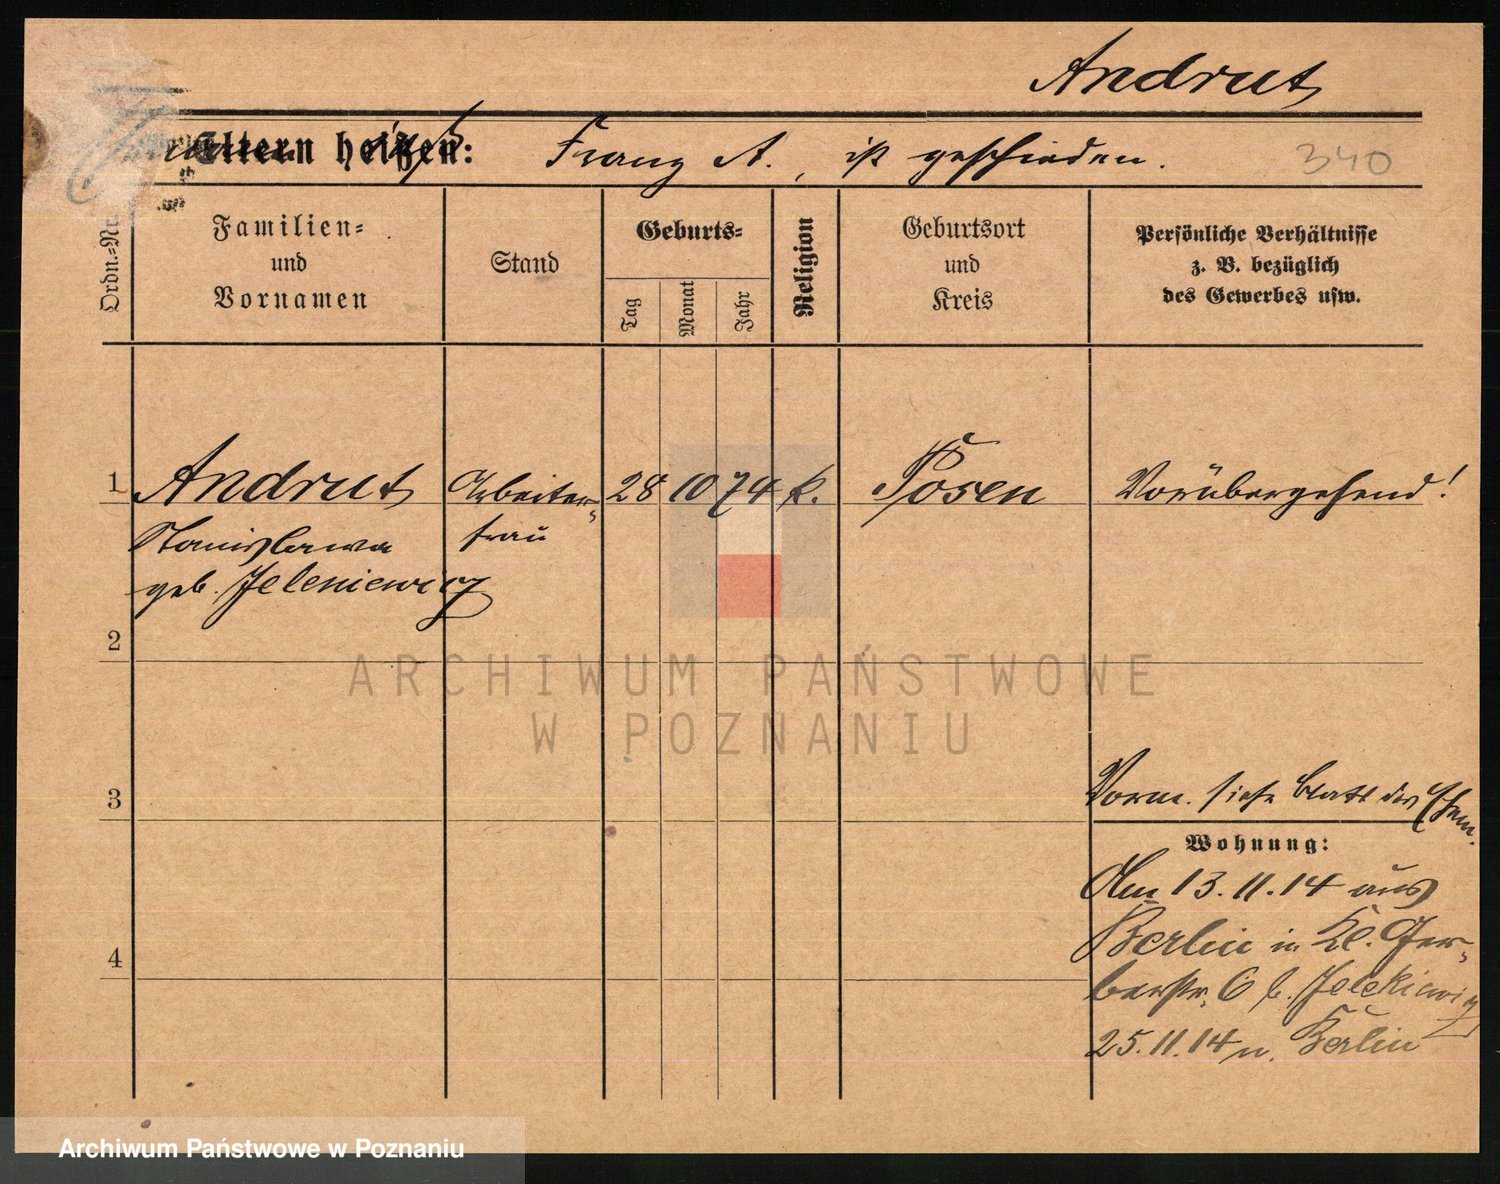 Andrut
Eltern heißen: Franz A., ist geschieden.
340
Ordn.-Nr.
Familien-
und
Vornamen
Stand
Geburts-
Tag
Monat
Jahr
Religion
Geburtsort
und
Kreis
Persönliche Verhältnisse
z. B. bezüglich
des Gewerbes usw.
1 Andrut Arbeiter- 28 10 74 k. Posen Vorübergehend!
Stanislawa frau
geb. Jeleniewicz
2
ARCHIWUM PAŃSTWOWE
W POZNANIU
3
Vorm. siehe Blatt des Ehem.
Wohnung:
Am 13.11.14 aus
Berlin in Kl. Ger-
4
berstr. 6 b. Jelekiewicz
25.11.14 n. Berlin
Archiwum Państwowe w Poznaniu